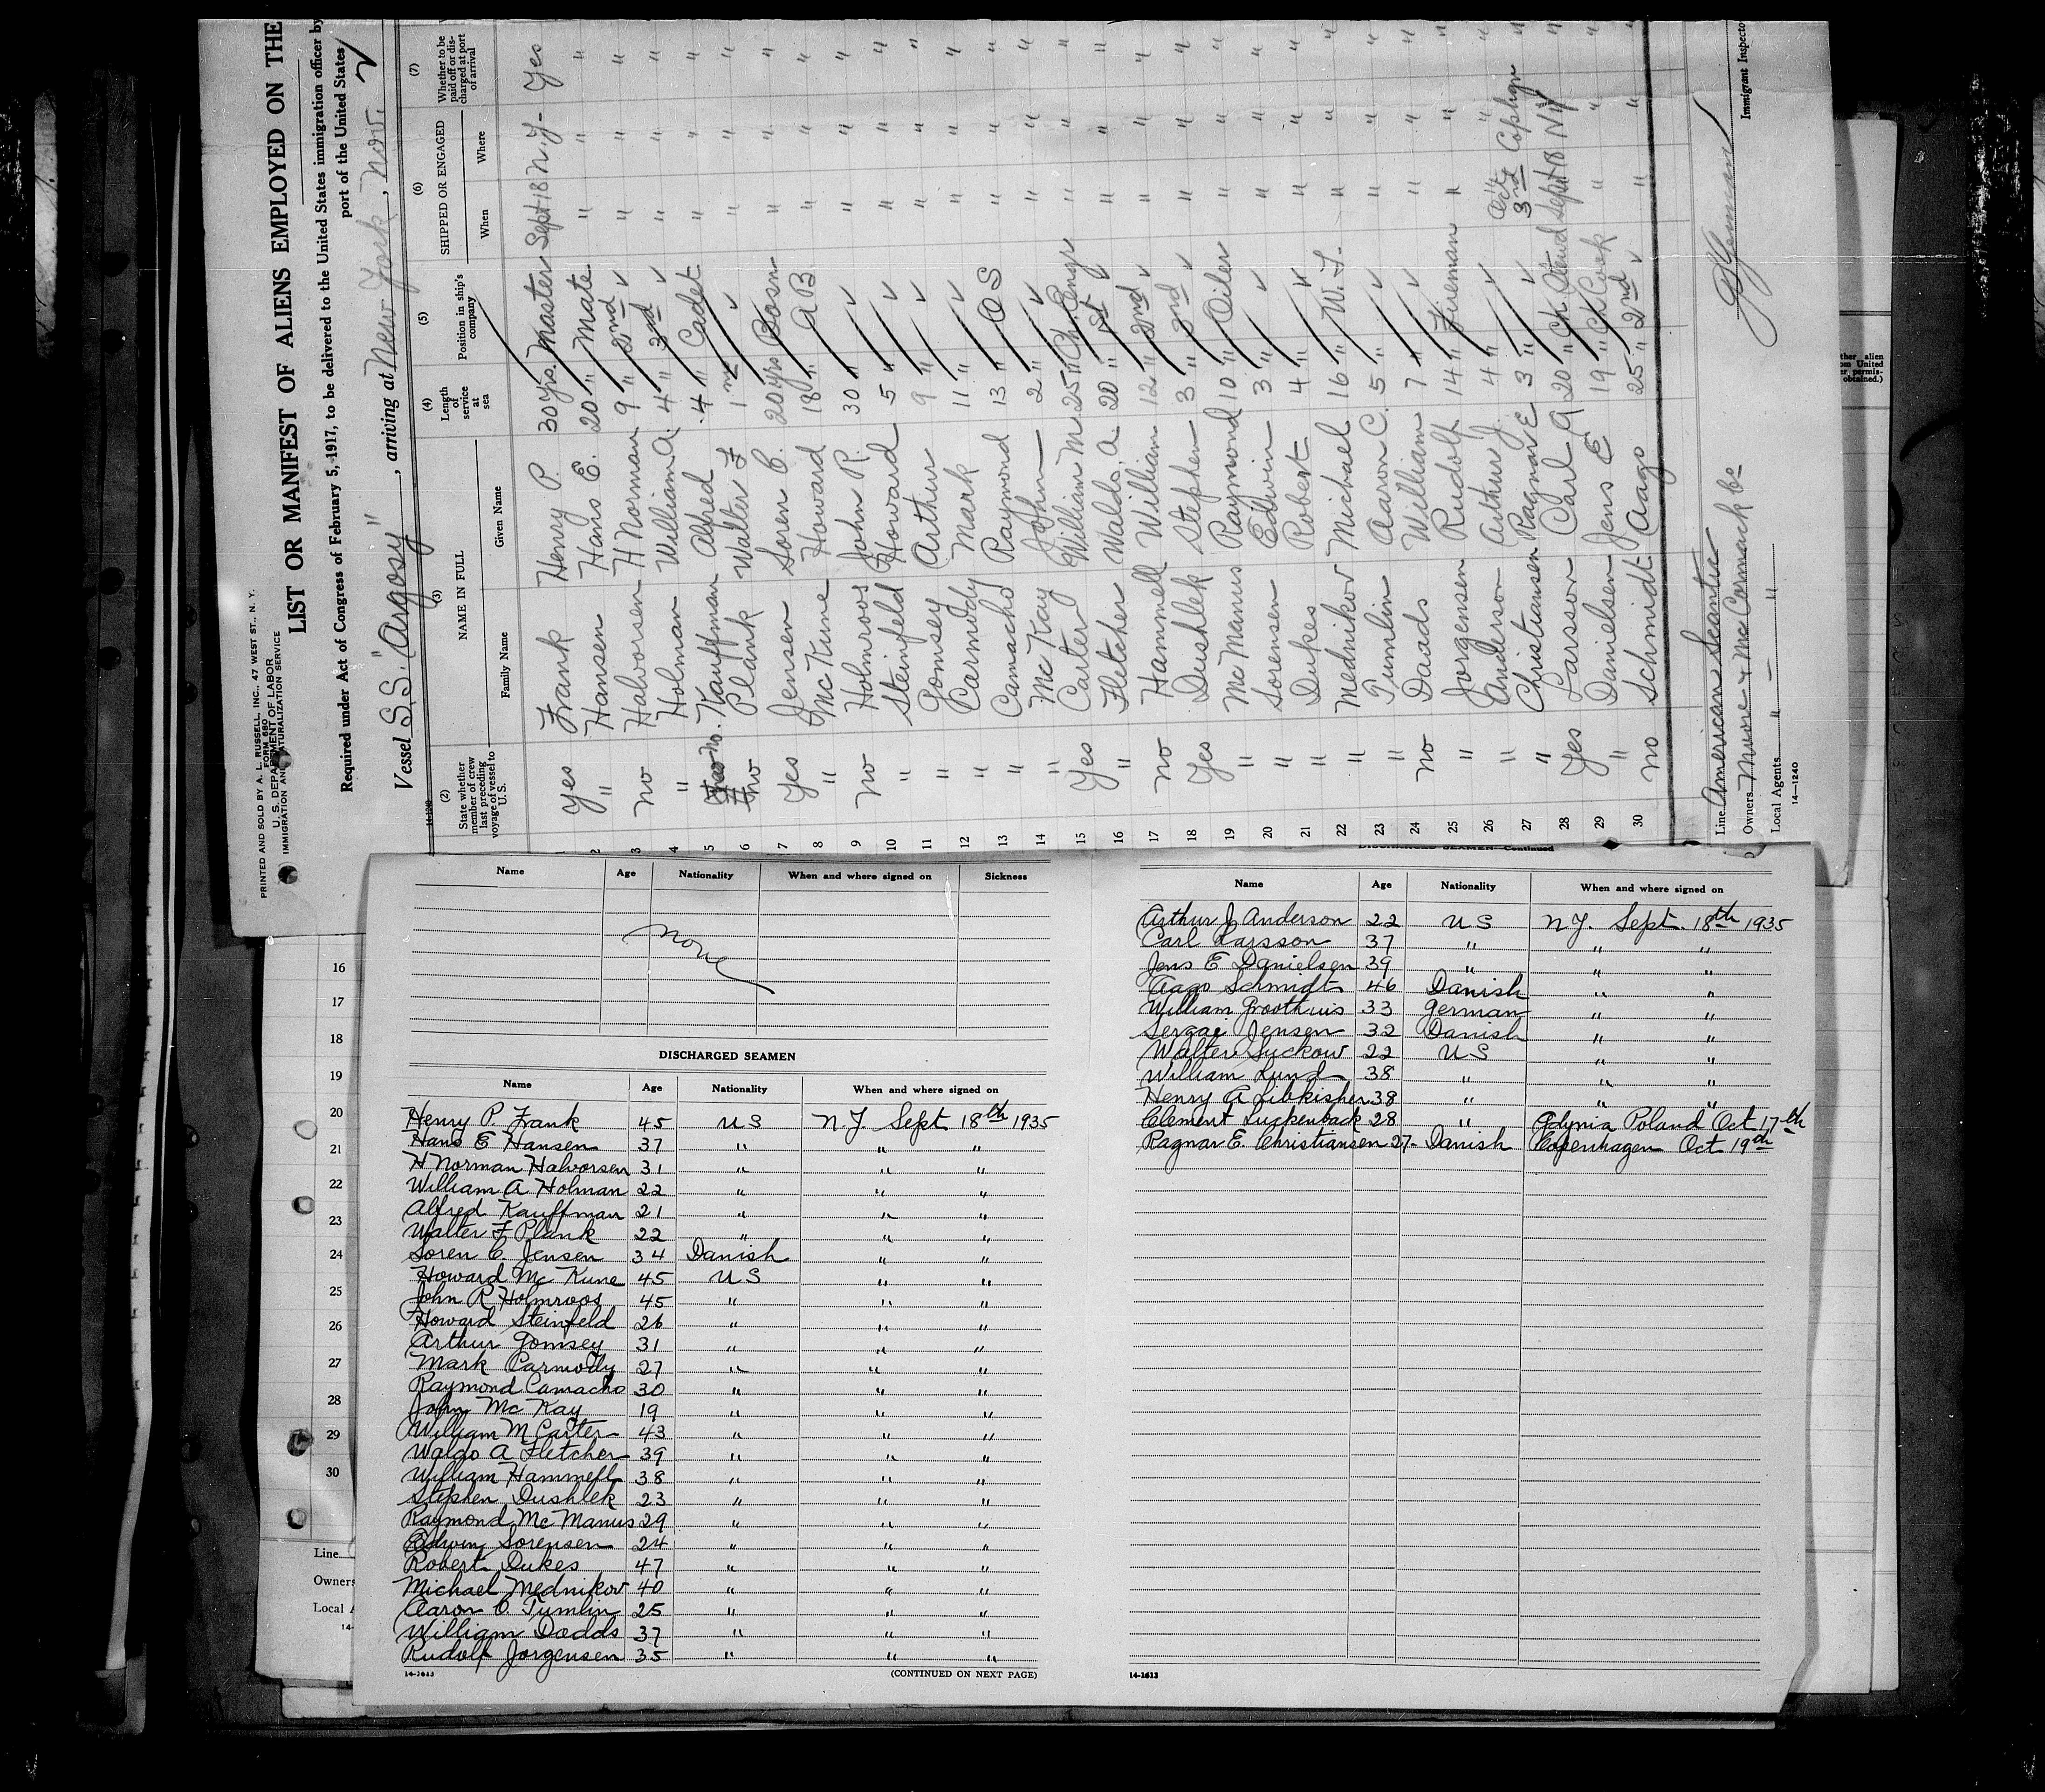 PRINTED AND SOLD BY A. L. RUSSELL, INC., 47 WEST ST., N. Y.
FORM 680
U. S. DEPARTMENT OF LABOR
IMMIGRATION AND NATURALIZATION SERVICE
LIST OR MANIFEST OF ALIENS EMPLOYED ON THE
Required under Act of Congress of February 5, 1917, to be delivered to the United States immigration officer by
port of the United States
Vessel S.S. "Argosy", arriving at New York, Nov.
(2) (3) (4) (5) (6) (7)
State whether member of crew last preceding voyage of vessel to U. S. NAME IN FULL Length of service at sea Position in ship's company SHIPPED OR ENGAGED Whether to be paid off or discharged at port of arrival
Family Name Given Name When Where
Yes Frank Henry P. 30 yrs. Master Sept 18 N.Y- Yes
2 " Hansen Hans E. 20 " Mate " " "
3 no Halvorsen H Norman 9 " 2nd " " "
4 " Holman William A. 4 " 3rd " " "
5 no. Kauffman Alfred 4 " Cadet " " "
6 no Plank Walter F 1 " " " "
7 Yes Jensen Soren C. 20 yrs Bosn " " "
8 " McKune Howard 18 " AB " " "
9 no Holmroos John R. 30 " " " "
10 " Steinfeld Howard 5 " " " "
11 " Gomsey Arthur 9 " " " "
12 " Carmody Mark 11 " " " "
13 " Camacho Raymond 13 " OS " " "
14 " McKay John 2 " " " "
15 Yes Carter William M 25 " Ch. Engr " " "
16 " Fletcher Waldo. A. 20 " 1st " " "
17 no Hammell William 12 " 2nd " " "
18 Yes Dushlek Stephen 3 " 3rd " " "
19 " McManus Raymond 10 " Oiler " " "
20 " Sorensen Edwin 3 " " " "
21 " Dukes Robert 4 " " " "
22 " Mednikov Michael 16 " W. T. " " "
23 " Tumlin Aaron C. 5 " " " "
24 no Dodds William 7 " " " "
25 " Jorgensen Rudolf 14 " Fireman " " "
26 " Anderson Arthur J. 4 " " " "
27 " Christiansen Ragnar E 3 " Oct 3rd Cophgn "
28 Yes Larsson Carl A 20 " Ch. Stewd Sept 18 NY "
29 " Danielsen Jens E 19 " Ch Cook " " "
30 no Schmidt Aago 25 " 2nd " " "
Line American Scantic
Owners Moore & McCormack Co
Local Agents " — "
14—1240
Immigrant Inspecto
ther alien
om United
r permis-
obtained.)
Name Age Nationality When and where signed on Sickness
None
DISCHARGED SEAMEN
Name Age Nationality When and where signed on
Henry P. Frank 45 US N.Y Sept 18th 1935
Hans E Hansen 37 " " "
H Norman Halvorsen 31 " " "
William A Holman 22 " " "
Alfred Kauffman 21 " " "
Walter F Plank 22 " " "
Soren C. Jensen 34 Danish " "
Howard McKune 45 US " "
John R Holmroos 45 " " "
Howard Steinfeld 26 " " "
Arthur Gomsey 31 " " "
Mark Carmody 27 " " "
Raymond Camacho 30 " " "
John McKay 19 " " "
William M Carter 43 " " "
Waldo A Fletcher 39 " " "
William Hammell 38 " " "
Stephen Dushlek 23 " " "
Raymond McManus 29 " " "
Edwin Sorensen 24 " " "
Robert Dukes 47 " " "
Michael Mednikov 40 " " "
Aaron C. Tumlin 25 " " "
William Dodds 37 " " "
Rudolf Jorgensen 35 " " "
14-1613 (CONTINUED ON NEXT PAGE)
DISCHARGED SEAMEN—Continued
Name Age Nationality When and where signed on
Arthur J Anderson 22 US N.Y. Sept. 18th 1935
Carl Larsson 37 " " "
Jens E Danielsen 39 " " "
Aago Schmidt 46 Danish " "
William Groothuis 33 German " "
Sergae Jensen 32 Danish " "
Walter Suckow 22 US " "
William Lund 38 " " "
Henry A Libkisher 38 " " "
Clement Luckenback 28 " Gdynia Poland Oct 17th
Ragnar E. Christiansen 27 Danish Copenhagen Oct 19th
14-1613
16
17
18
19
20
21
22
23
24
25
26
27
28
29
30
Line
Owners
Local A
14-